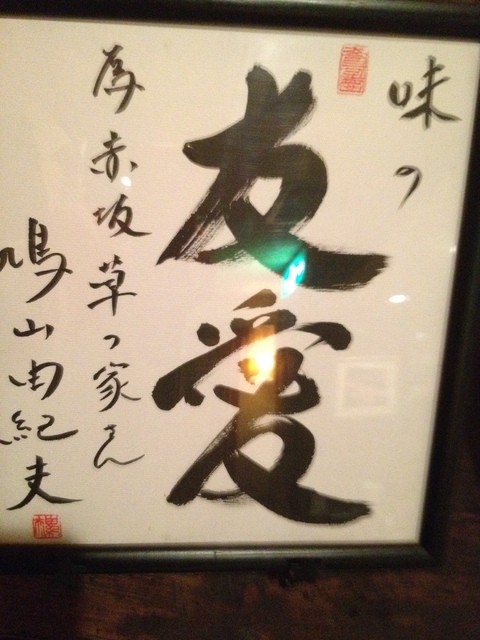 味の
友愛
為 赤坂 草の家さん
鳩山由紀夫